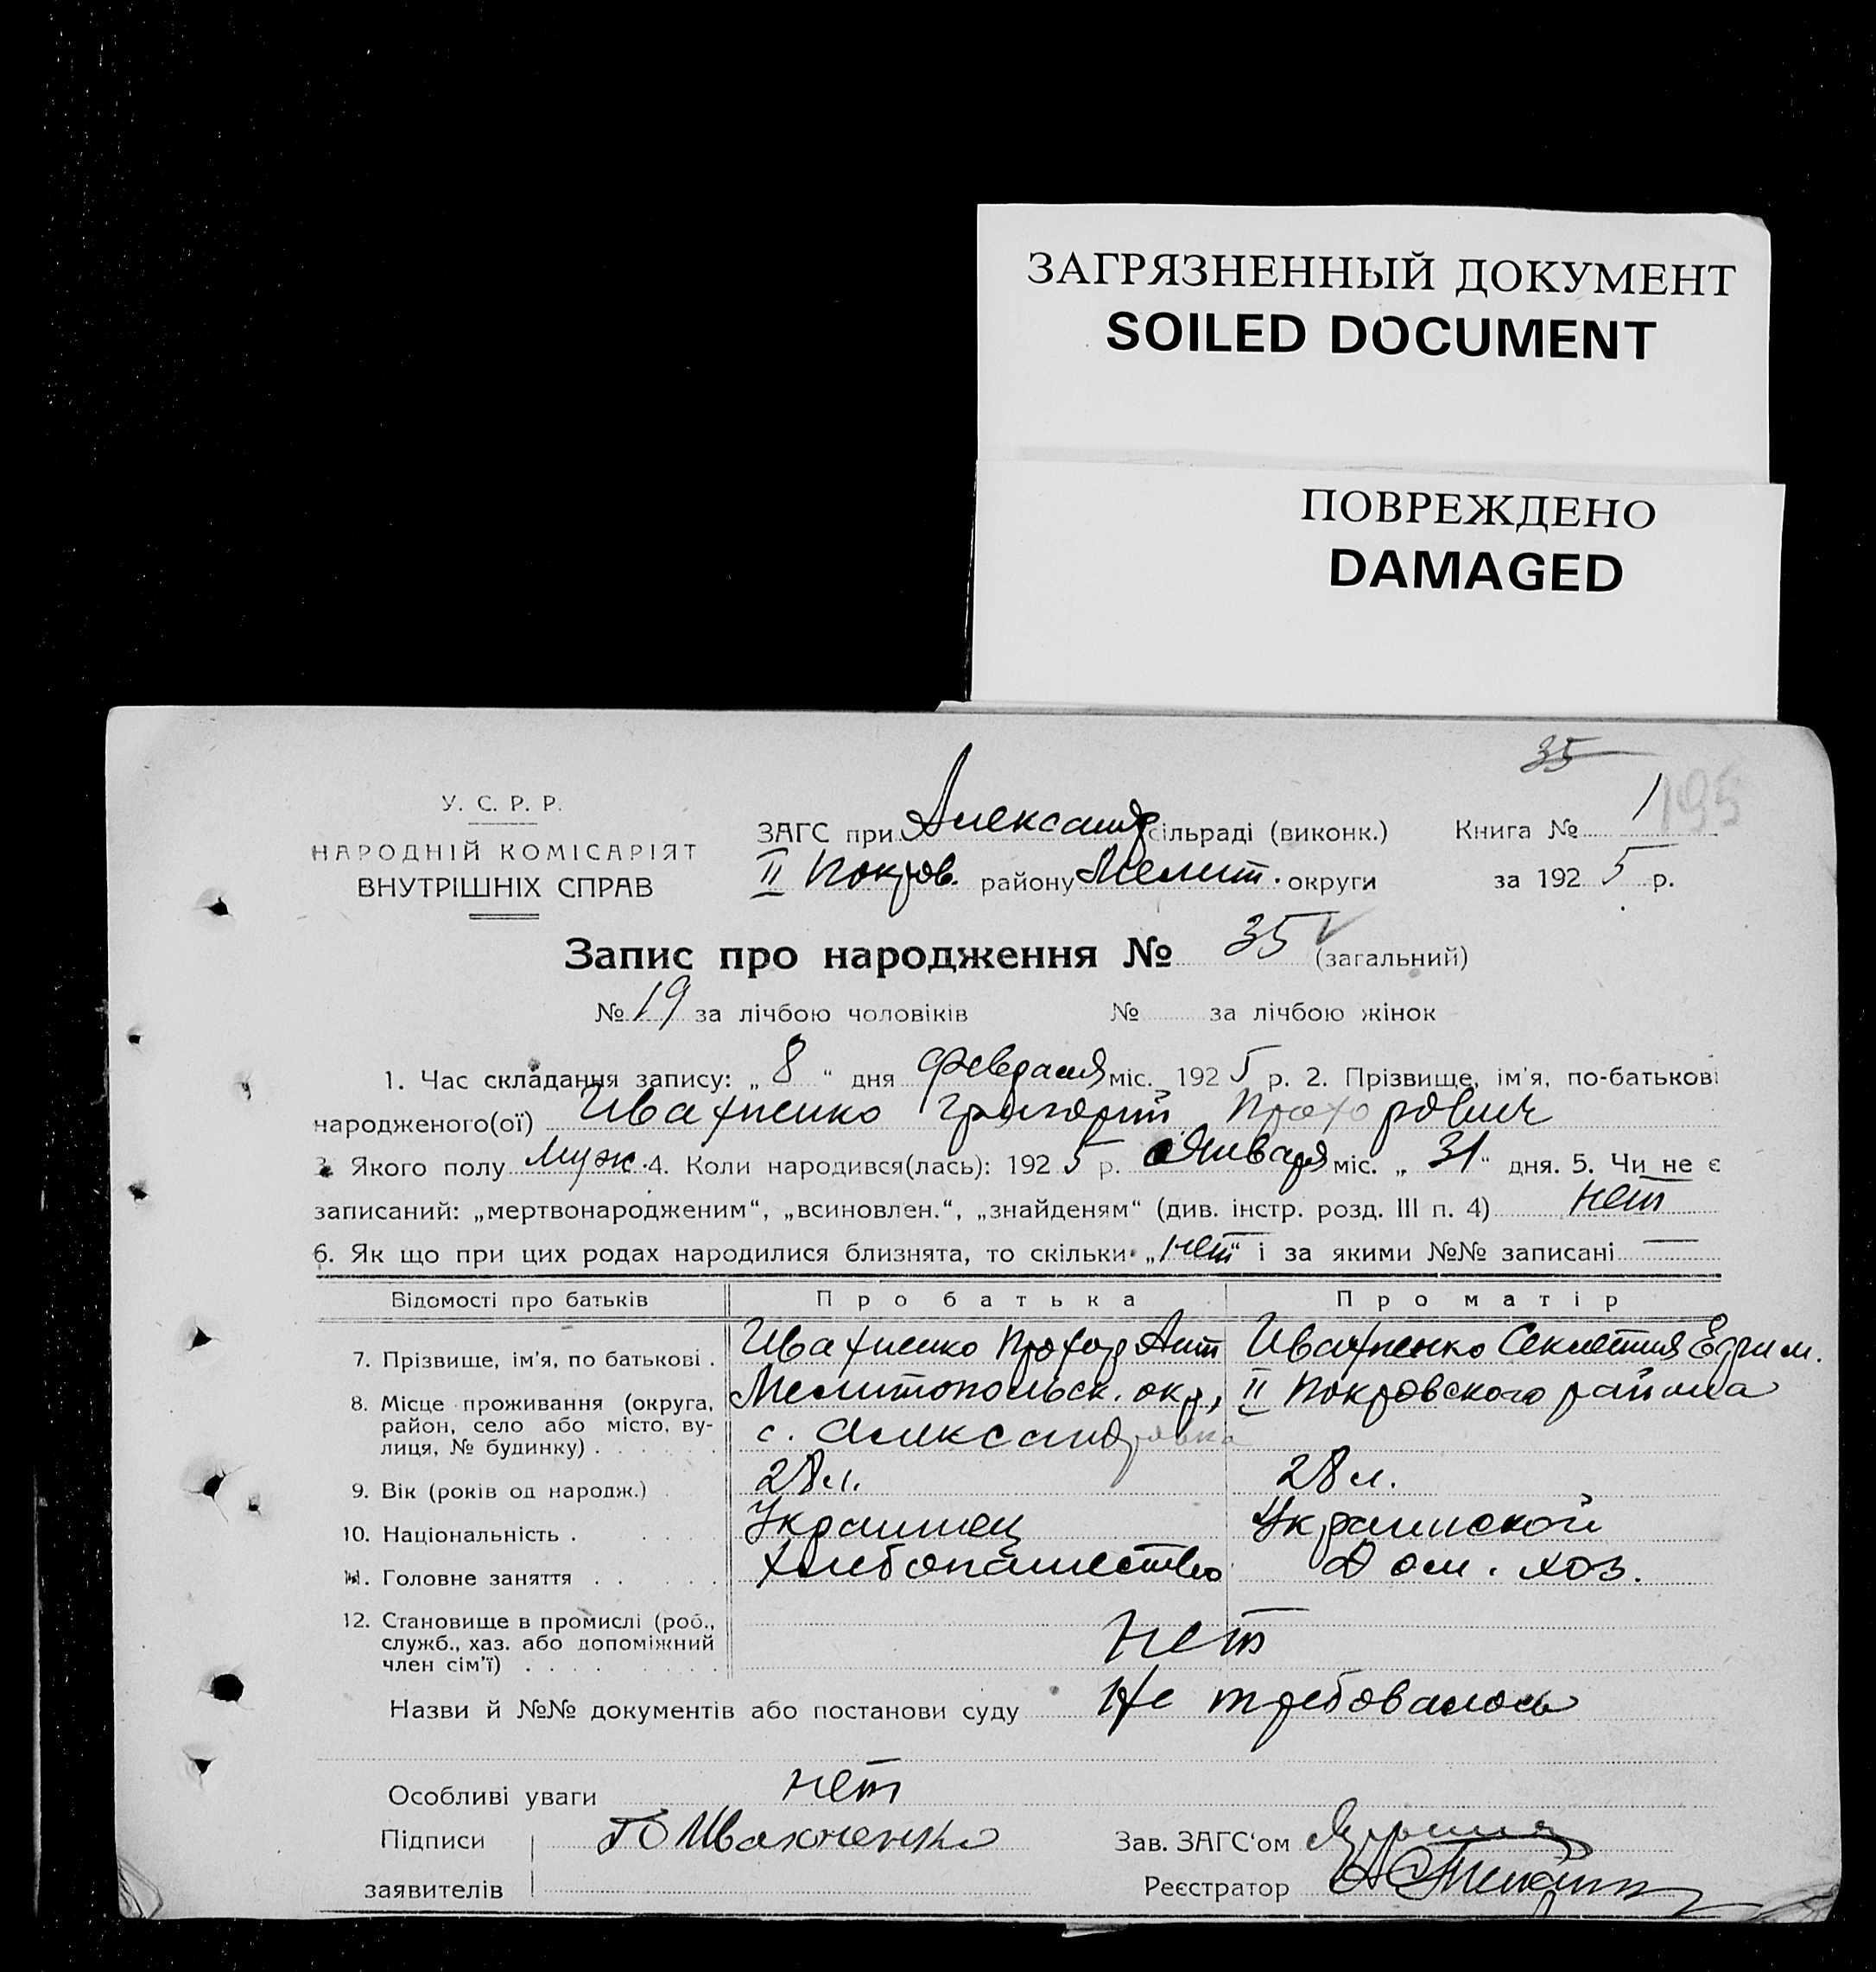 ЗАГРЯЗНЕННЫЙ ДОКУМЕНТ
SOILED DOCUMENT
ПОВРЕЖДЕНО
DAMAGED
35
195
У. С. Р. Р.
НАРОДНІЙ КОМІСАРІЯТ
ВНУТРІШНІХ СПРАВ
ЗАГС при Александр сільраді (виконк.) Книга № 1
II Покров. району Мелит. округи за 1925 р.
Запис про народження № 35 (загальний)
№ 19 за лічбою чоловіків № за лічбою жінок
1. Час складання запису: „ 8 “ дня Февраля міс. 1925 р. 2. Прізвище, ім'я, по-батькові
народженого(ої) Ивахненко Григорий Прохорович
3. Якого полу Муж. 4. Коли народився(лась): 1925 р. Января міс. „ 31 “ дня. 5. Чи не є
записаний: „мертвонародженим“, „всиновлен.“, „знайденям“ (див. інстр. розд. III п. 4) нет
6. Як що при цих родах народилися близнята, то скільки „нет“ і за якими №№ записані —
Відомості про батьків Про батька Про матір
7. Прізвище, ім'я, по батькові . Ивахненко Прохор Ант Ивахненко Секлетия Ефрим.
8. Місце проживання (округа, Мелитопольск. окр., II Покровского района
район, село або місто, ву- с. Александровка
лиця, № будинку) . . . . . .
9. Вік (років од народж.) . 28 л. 28 л.
10. Національність . . . . Украинец Украинской
11. Головне заняття . . . . Хлебопашество Дом. хоз.
12. Становище в промислі (роб.,
служб., хаз. або допоміжний нет
член сім'ї) . . . . . . . .
Назви й №№ документів або постанови суду Не требовалось
Особливі уваги нет
Підписи Ивахненко Зав. ЗАГС‘ом
заявителів Реєстратор